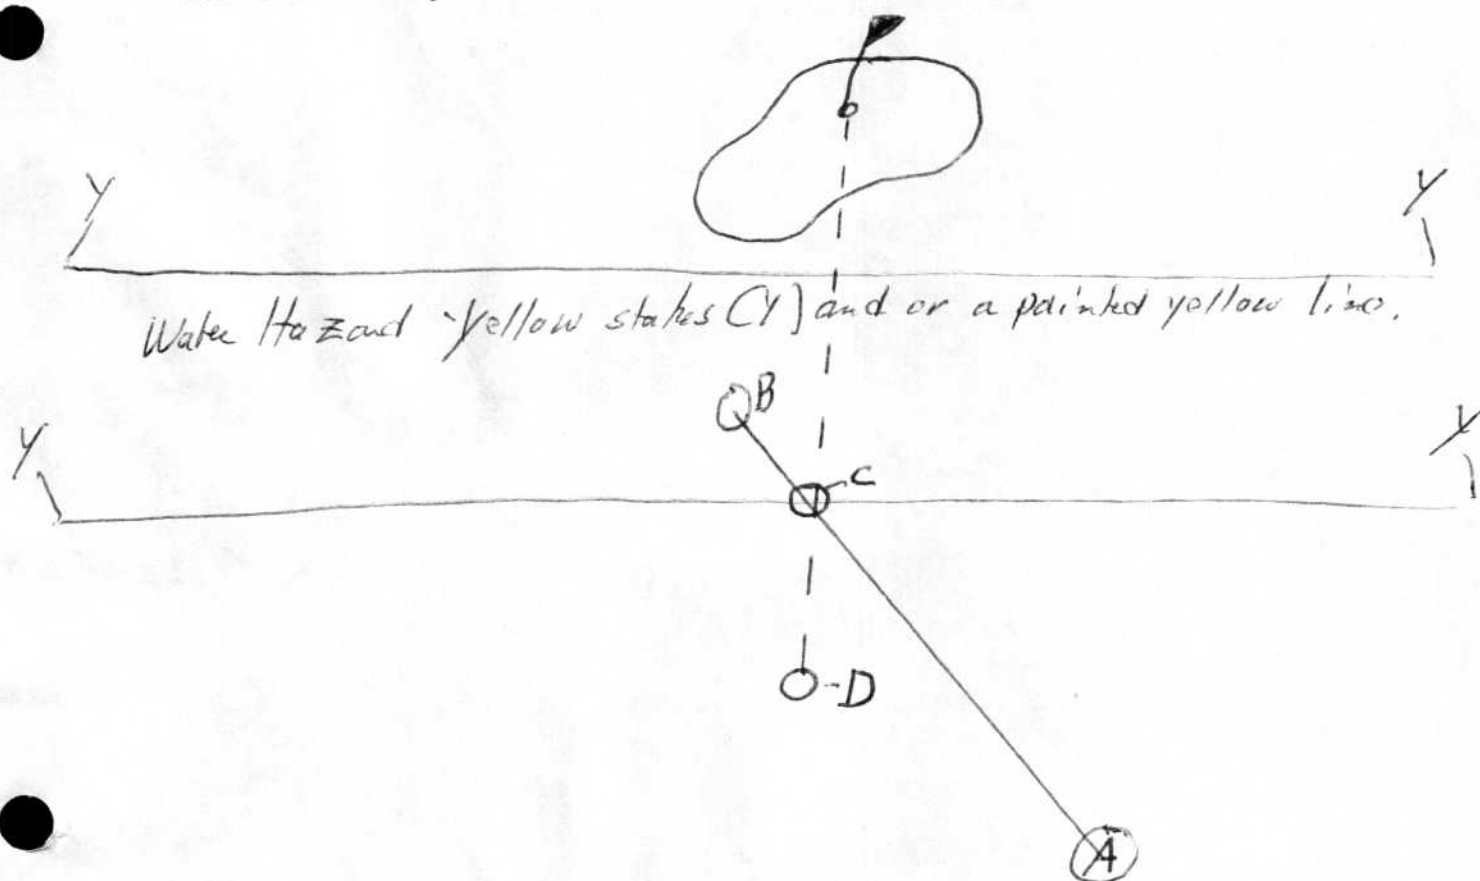 Y
Y
Water Hazard - Yellow stakes (Y) and or a painted yellow line.
B
Y
Y
C
D
A